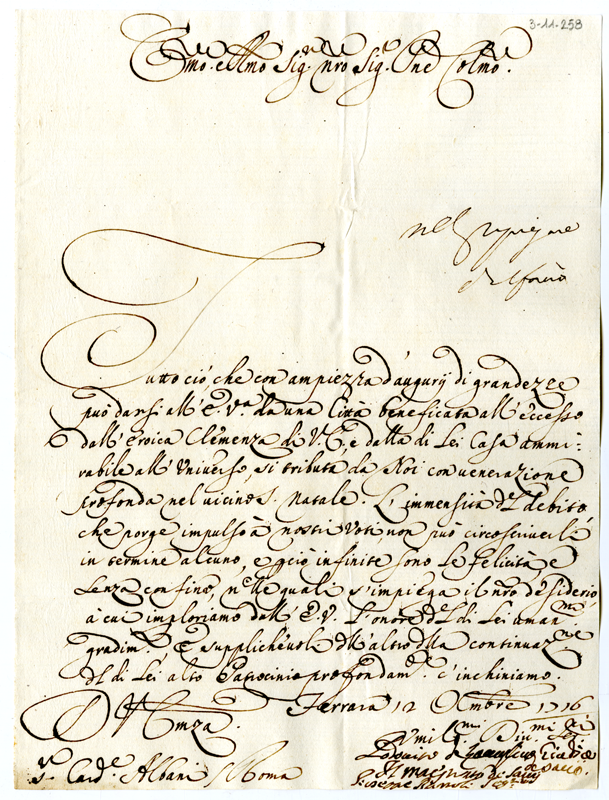 3-11-258
Emo. e Rmo Sig. nro Sig. Pne Colmo.
Tutto ciò, che con ampiezza d'augurij di grandezze
può darsi all' E. Va. da una Città beneficata all' eccesso
dall' eroica Clemenza di V. E, e dalla di Lei Casa ammi:
rabile all' Universo, si tributa da Noi con venerazione
profonda nel vicino S. Natale. L'immensità del debito
che porge impulso à nostri Voti non può circoscriverle
in termine alcuno, e pciò infinite sono le felicità e
senza confine, nelle quali s'impiega il nro desiderio
à cui imploriamo dall' E. V. l'onore del di Lei uman.mo
gradim.to E supplichevoli dell' altro della continuaz.ne
del di Lei alto Patrocinio profondam.te c'inchiniamo.
D V Emza.
Ferrara 12 Xmbre 1716
Umil.mi Div.mi
Il Maestrato de Savij
S.r Card.e Albani / Roma